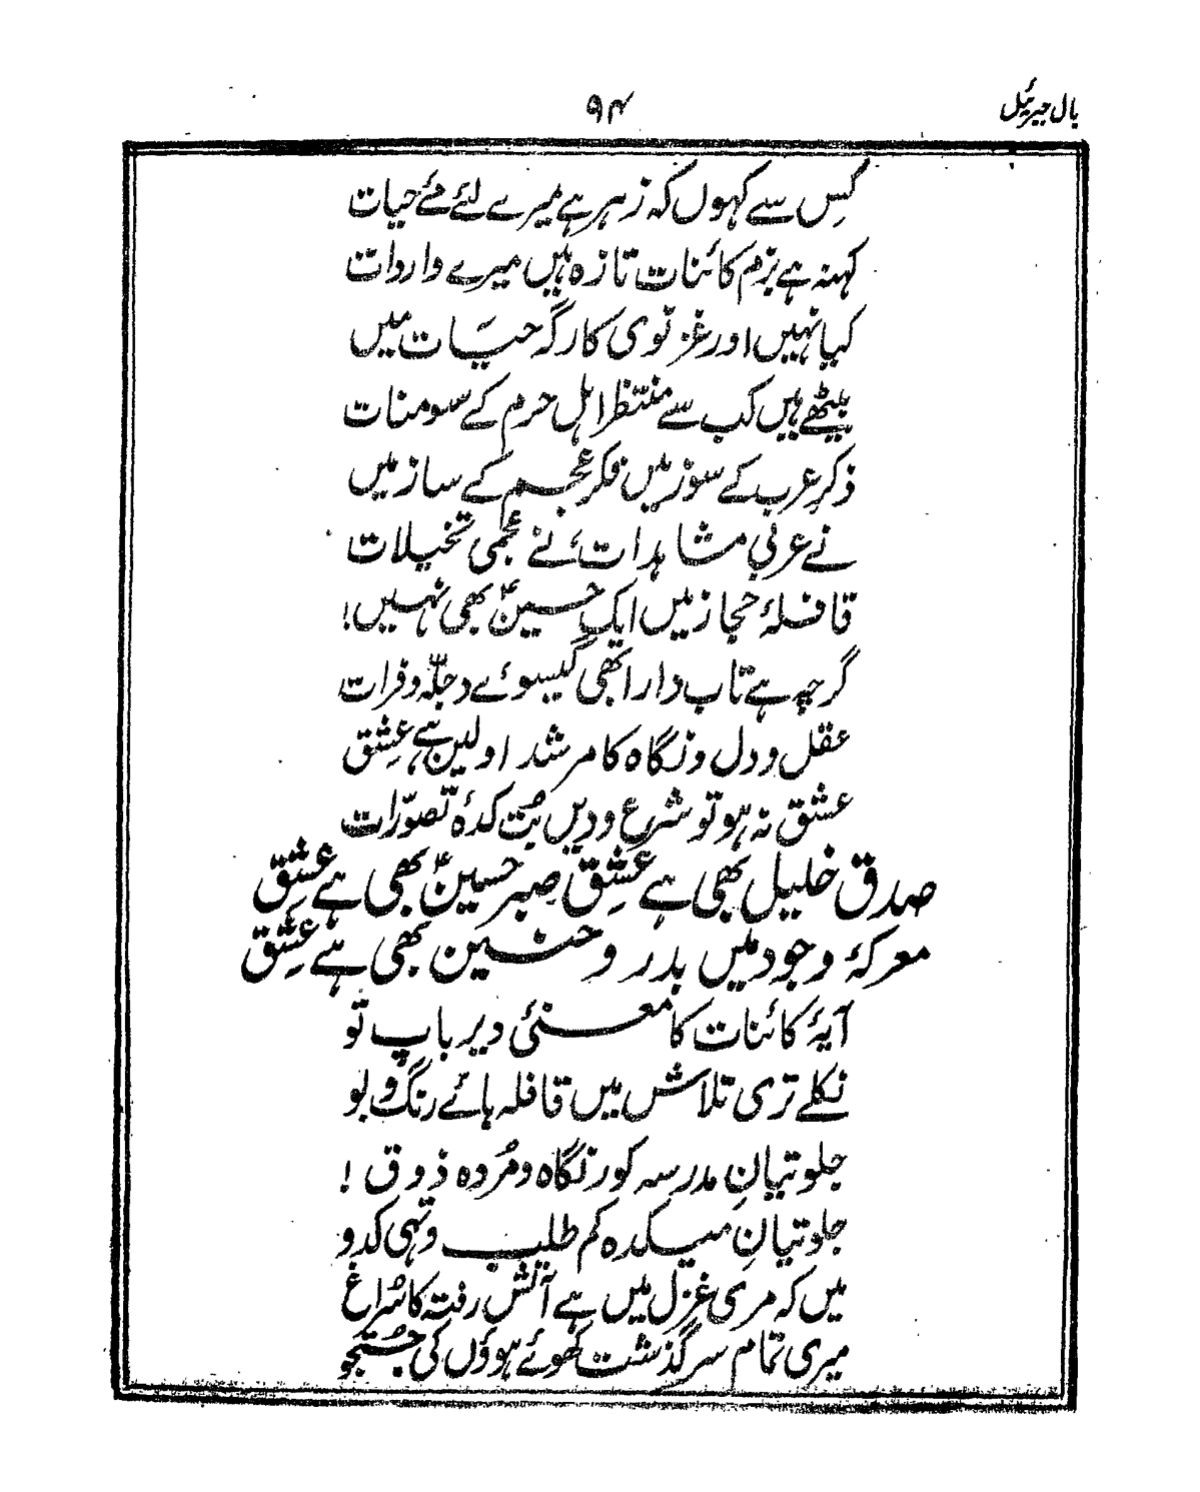 بال جبرئیل
۹۴
کِس سے کہوں کہ زہر ہے میرے لئے مئے حیات
کہنہ ہے بزم کائنات تازہ ہیں میرے واردات
کیا نہیں اور غزنوی کارگہ حیات میں
بیٹھے ہیں کب سے منتظر اہل حرم کے سومنات
ذکرِ عرب کے سوز میں فکرِ عجم کے ساز میں
نے عربی مشاہدات، نے عجمی تخیلات
قافلۂ حجاز میں ایک حسینؑ بھی نہیں!
گرچہ ہے تاب دار ابھی گیسوئے دجلہ و فرات
عقل و دل و نگاہ کا مرشد اولیں ہے عِشق
عشق نہ ہو تو شرع و دیں بُت کدۂ تصوّرات
صدق خلیل بھی ہے عِشق صبرِ حسینؑ بھی ہے عِشق
معرکۂ وجود میں بدر و حنین بھی ہے عِشق
آیۂ کائنات کا معنئ دیر یاب تو
نکلے تری تلاش میں قافلہ ہائے رنگ و بو
جلوتیانِ مدرسہ کور نگاہ و مُردہ ذوق !
جلوتیانِ میکدہ کم طلب و تہی کدو
میں کہ مری غزل میں ہے آتش رفتہ کا سُراغ
میری تمام سرگذشت کھوئے ہوؤں کی جُستجو